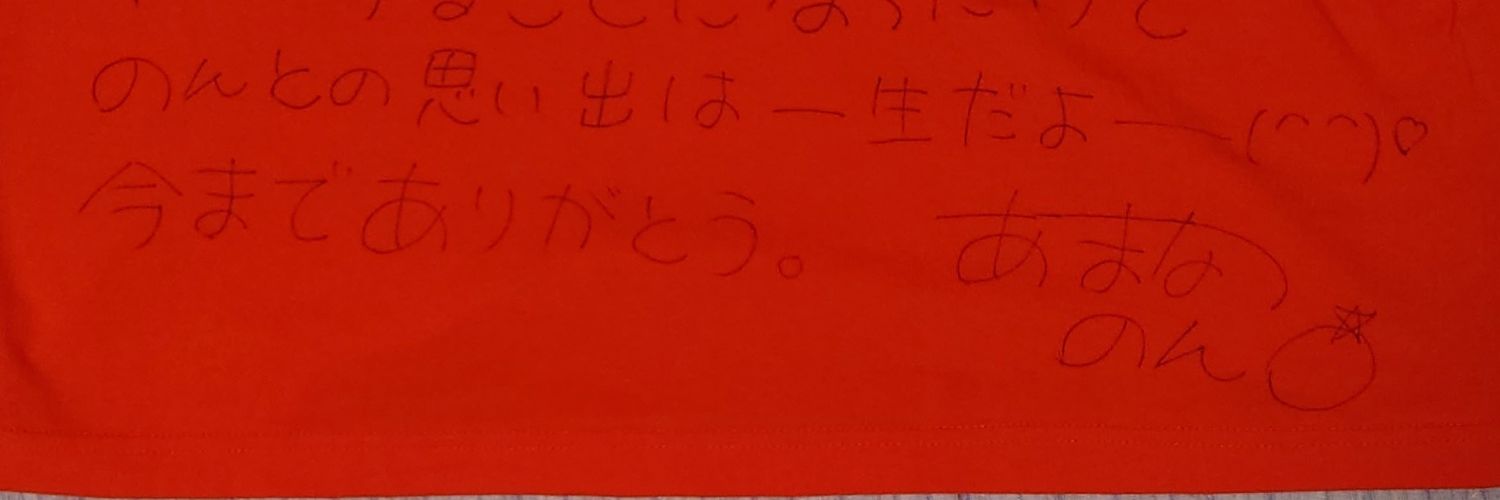 することになったけど
のんとの思い出は一生だよー(^^)♡
今までありがとう。
あまな
のん